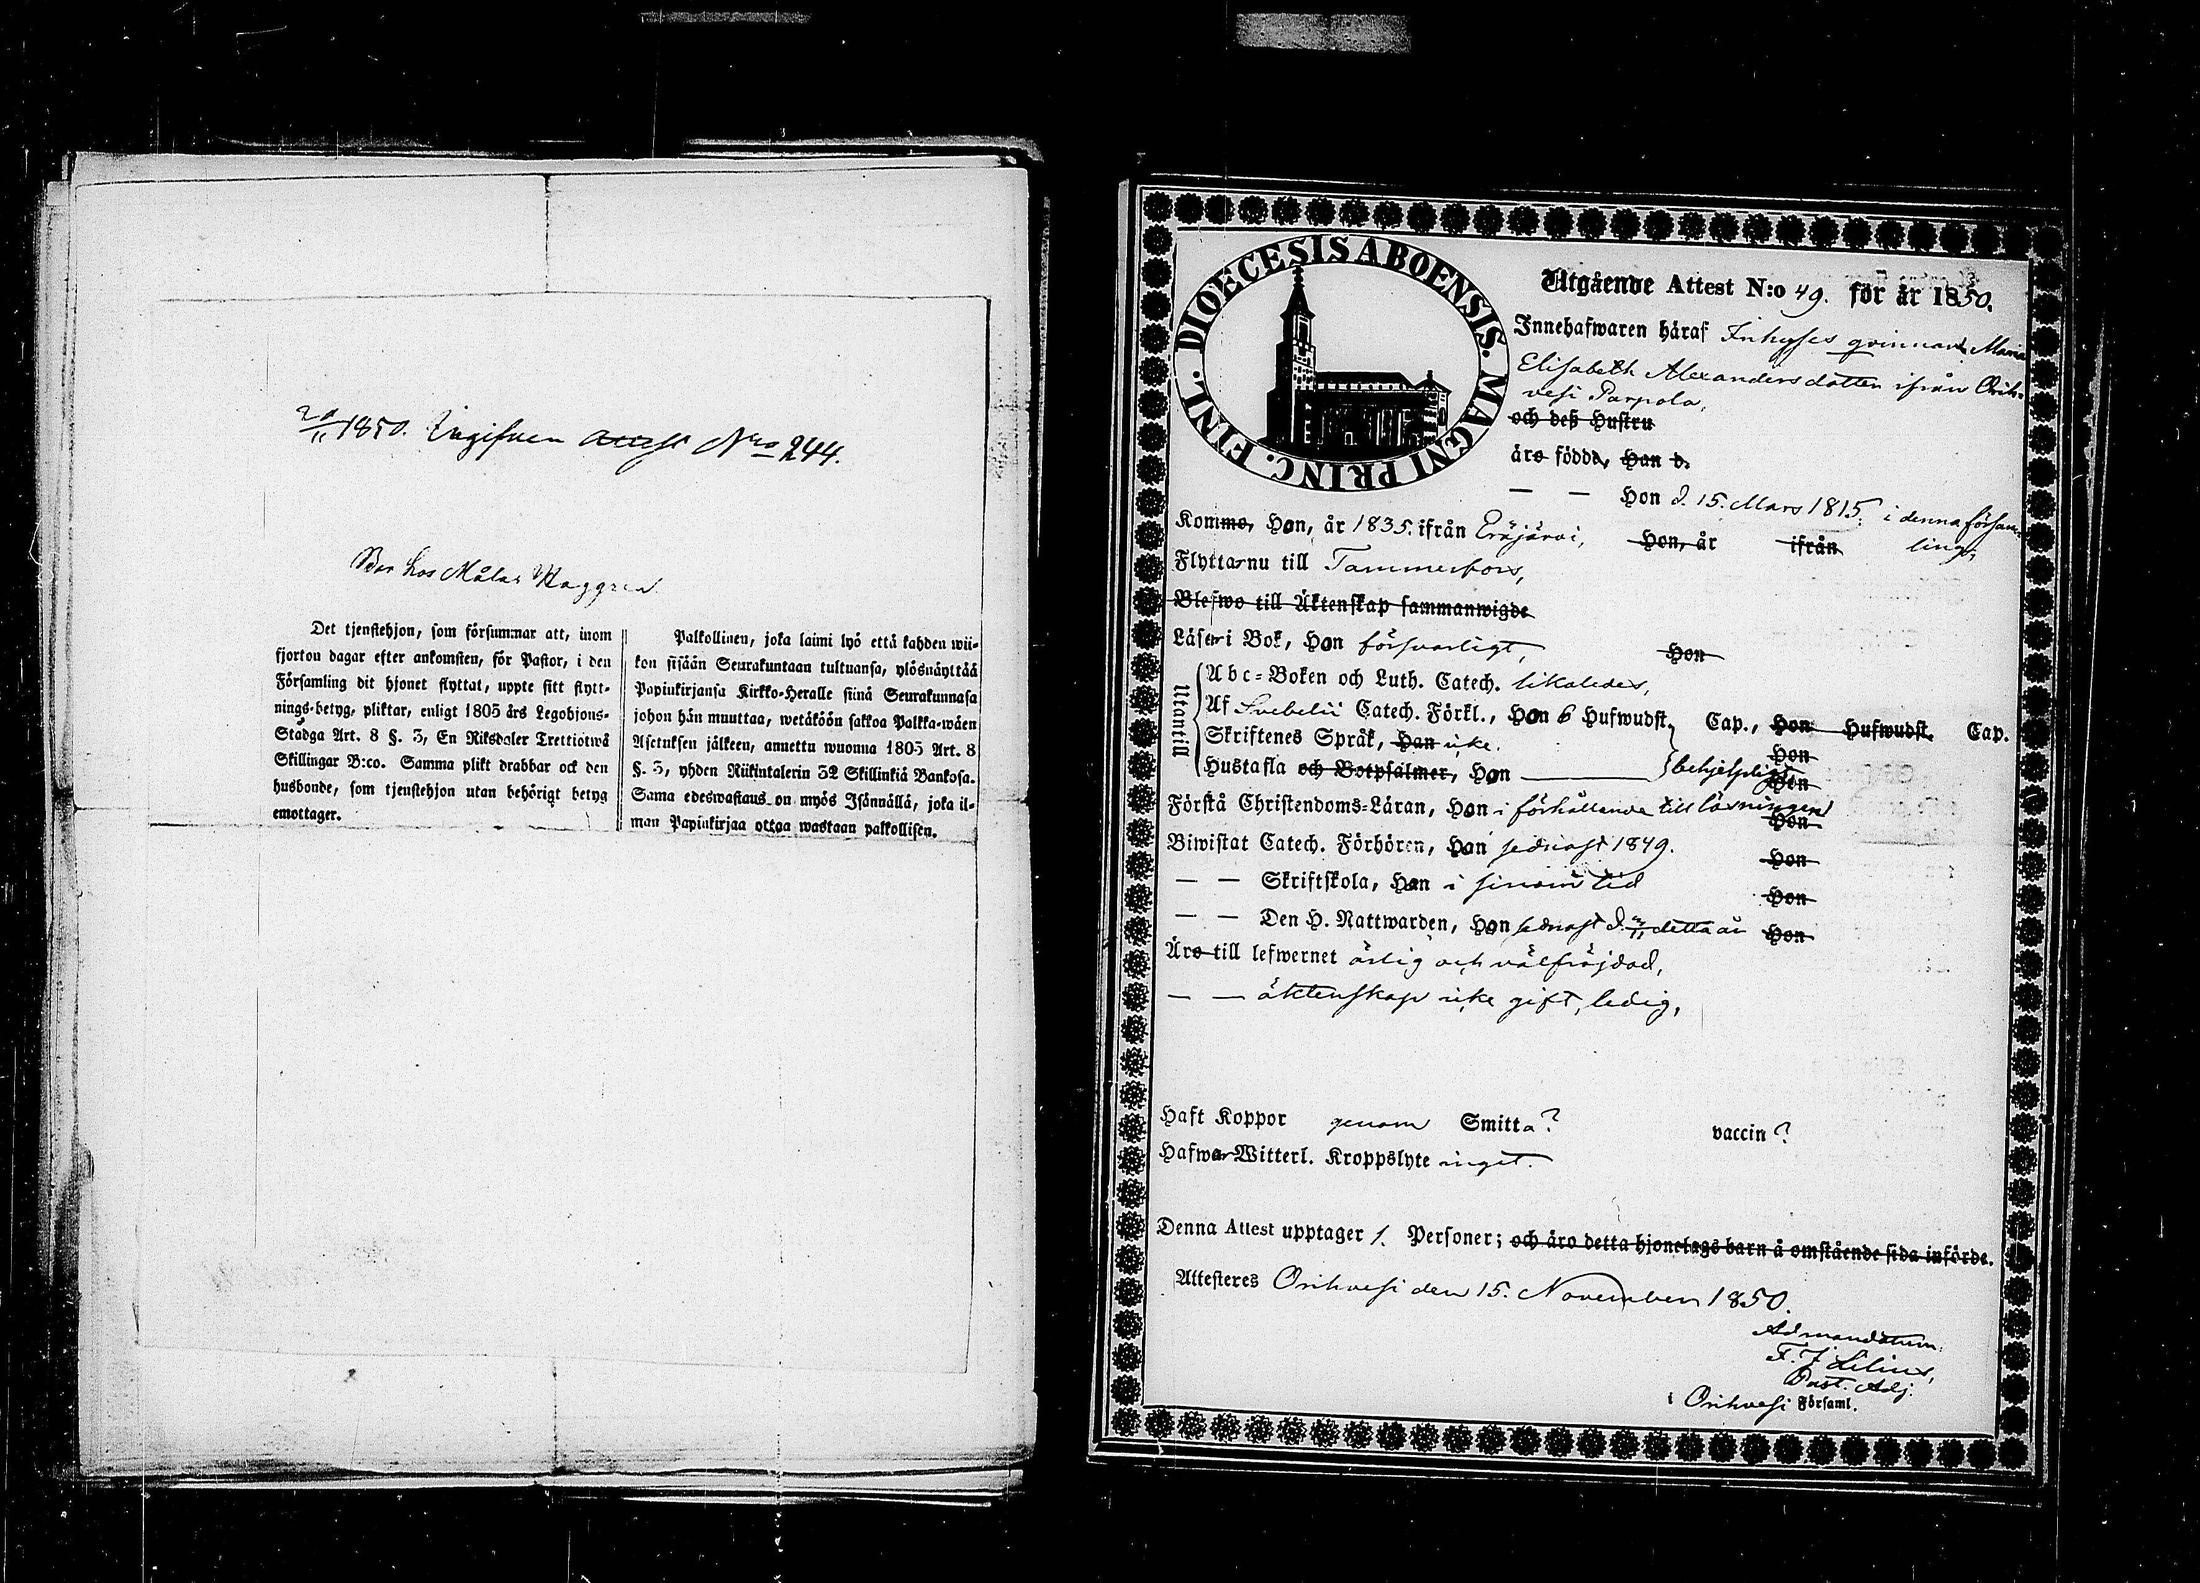 20/11 1850. Ingifven attest Nro 244.
Bor hos Målar
Det tjenstehjon, som försummar att, inom
fjorton dagar efter ankomsten, för Pastor, i den
Församling dit hjonet flyttat, uppte sitt flytt-
nings-betyg, pliktar, enligt 1805 års Legohjons-
Stadga Art. 8 §. 3, En Riksdaler Trettiotwå
Skillingar B:co. Samma plikt drabbar ock den
husbonde, som tjenstehjon utan behörigt betyg
emottager.
Palkollinen, joka laimi lyö että kahden wii-
kon sisään Seurakuntaan tultuansa, ylösnäyttää
Papinkirjansa Kirkko-Heralle siinä Seurakunnasa
johon hän muuttaa, wetäköön sakkoa Palkka-wäen
Asetuksen jälkeen, annettu wuonna 1805 Art. 8
§. 3, yhden Riikintalerin 32 Skillinkiä Bankosa.
Sama edeswastaus on myös Isännällä, joka il-
man Papinkirjaa ottaa wastaan palkollisen.
DIOECESIS ABOENSIS. MAGNI PRINC. FINL.
Utgående Attest N:o 49. för år 1850.
Innehafwaren häraf Inhyses qvinnan Maria
Elisabeth Alexandersdotter ifrån Orih-
vesi Parpola,
och deß Hustru
äro födde, Han d.
— — Hon d. 15. Mars 1815. i denna försam-
ling,
Kommo, Hon, år 1835. ifrån Eräjärvi, Hon, år ifrån
Flyttar nu till Tammerfors,
Blefwo till Äktenskap sammanwigde
Läser i Bok, Hon försvarligt, Hon
Utantill
Abc-Boken och Luth. Catech. likaledes,
Af Svebelii Catech. Förkl., Hon 6 Hufwudst. Cap., Hon Hufwudst. Cap.
Skriftenes Språk, Han icke. Hon
Hustafla och Botpsalmer, Hon behjelpligt Hon
Förstå Christendoms-Läran, Hon i förhållande till läsningen Hon
Biwistat Catech. Förhören, Hon sednast 1849. Hon
— — Skriftskola, Hon i sinom tid Hon
— — Den H. Nattwarden, Hon sednast d. detta år Hon
Äro till lefwernet ärlig och välfräjdad,
— — äktenskap icke gift, ledig,
Haft Koppor genom Smitta? vaccin?
Hafwa Witterl. Kroppslyte inget.
Denna Attest upptager 1. Personer; och äro detta hjonelags barn å omstående sida införde.
Attesteres Orihvesi den 15. November 1850.
Ad mandatum.
F. J. Lilius,
Past. Adj.
i Orihvesi Församl.